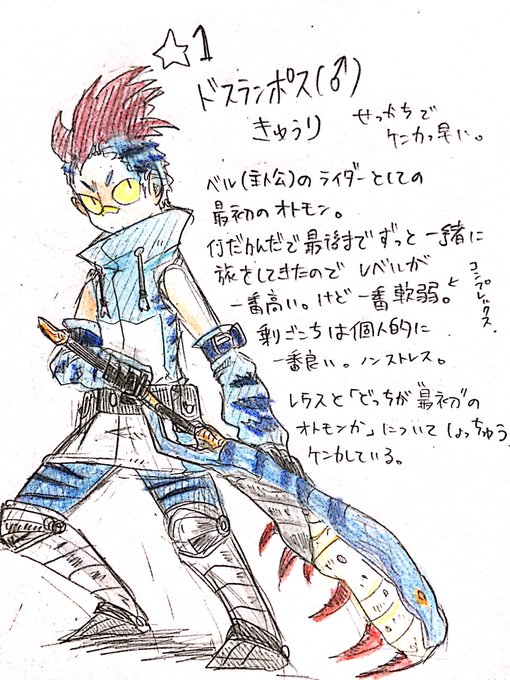 ☆1
ドスランポス(♂)
きゅうり
せっかちで
ケンカっ早い。
ベル(主人公)のライダーとしての
最初のオトモン。
何だかんだで最後までずっと一緒に
旅をしてきたのでレベルが
一番高い。けど一番軟弱。
コンプレックス。
乗りごこちは個人的に
一番良い。ノンストレス。
レウスと「どっちが"最初"の
オトモンか」についてしょっちゅう
ケンカしている。